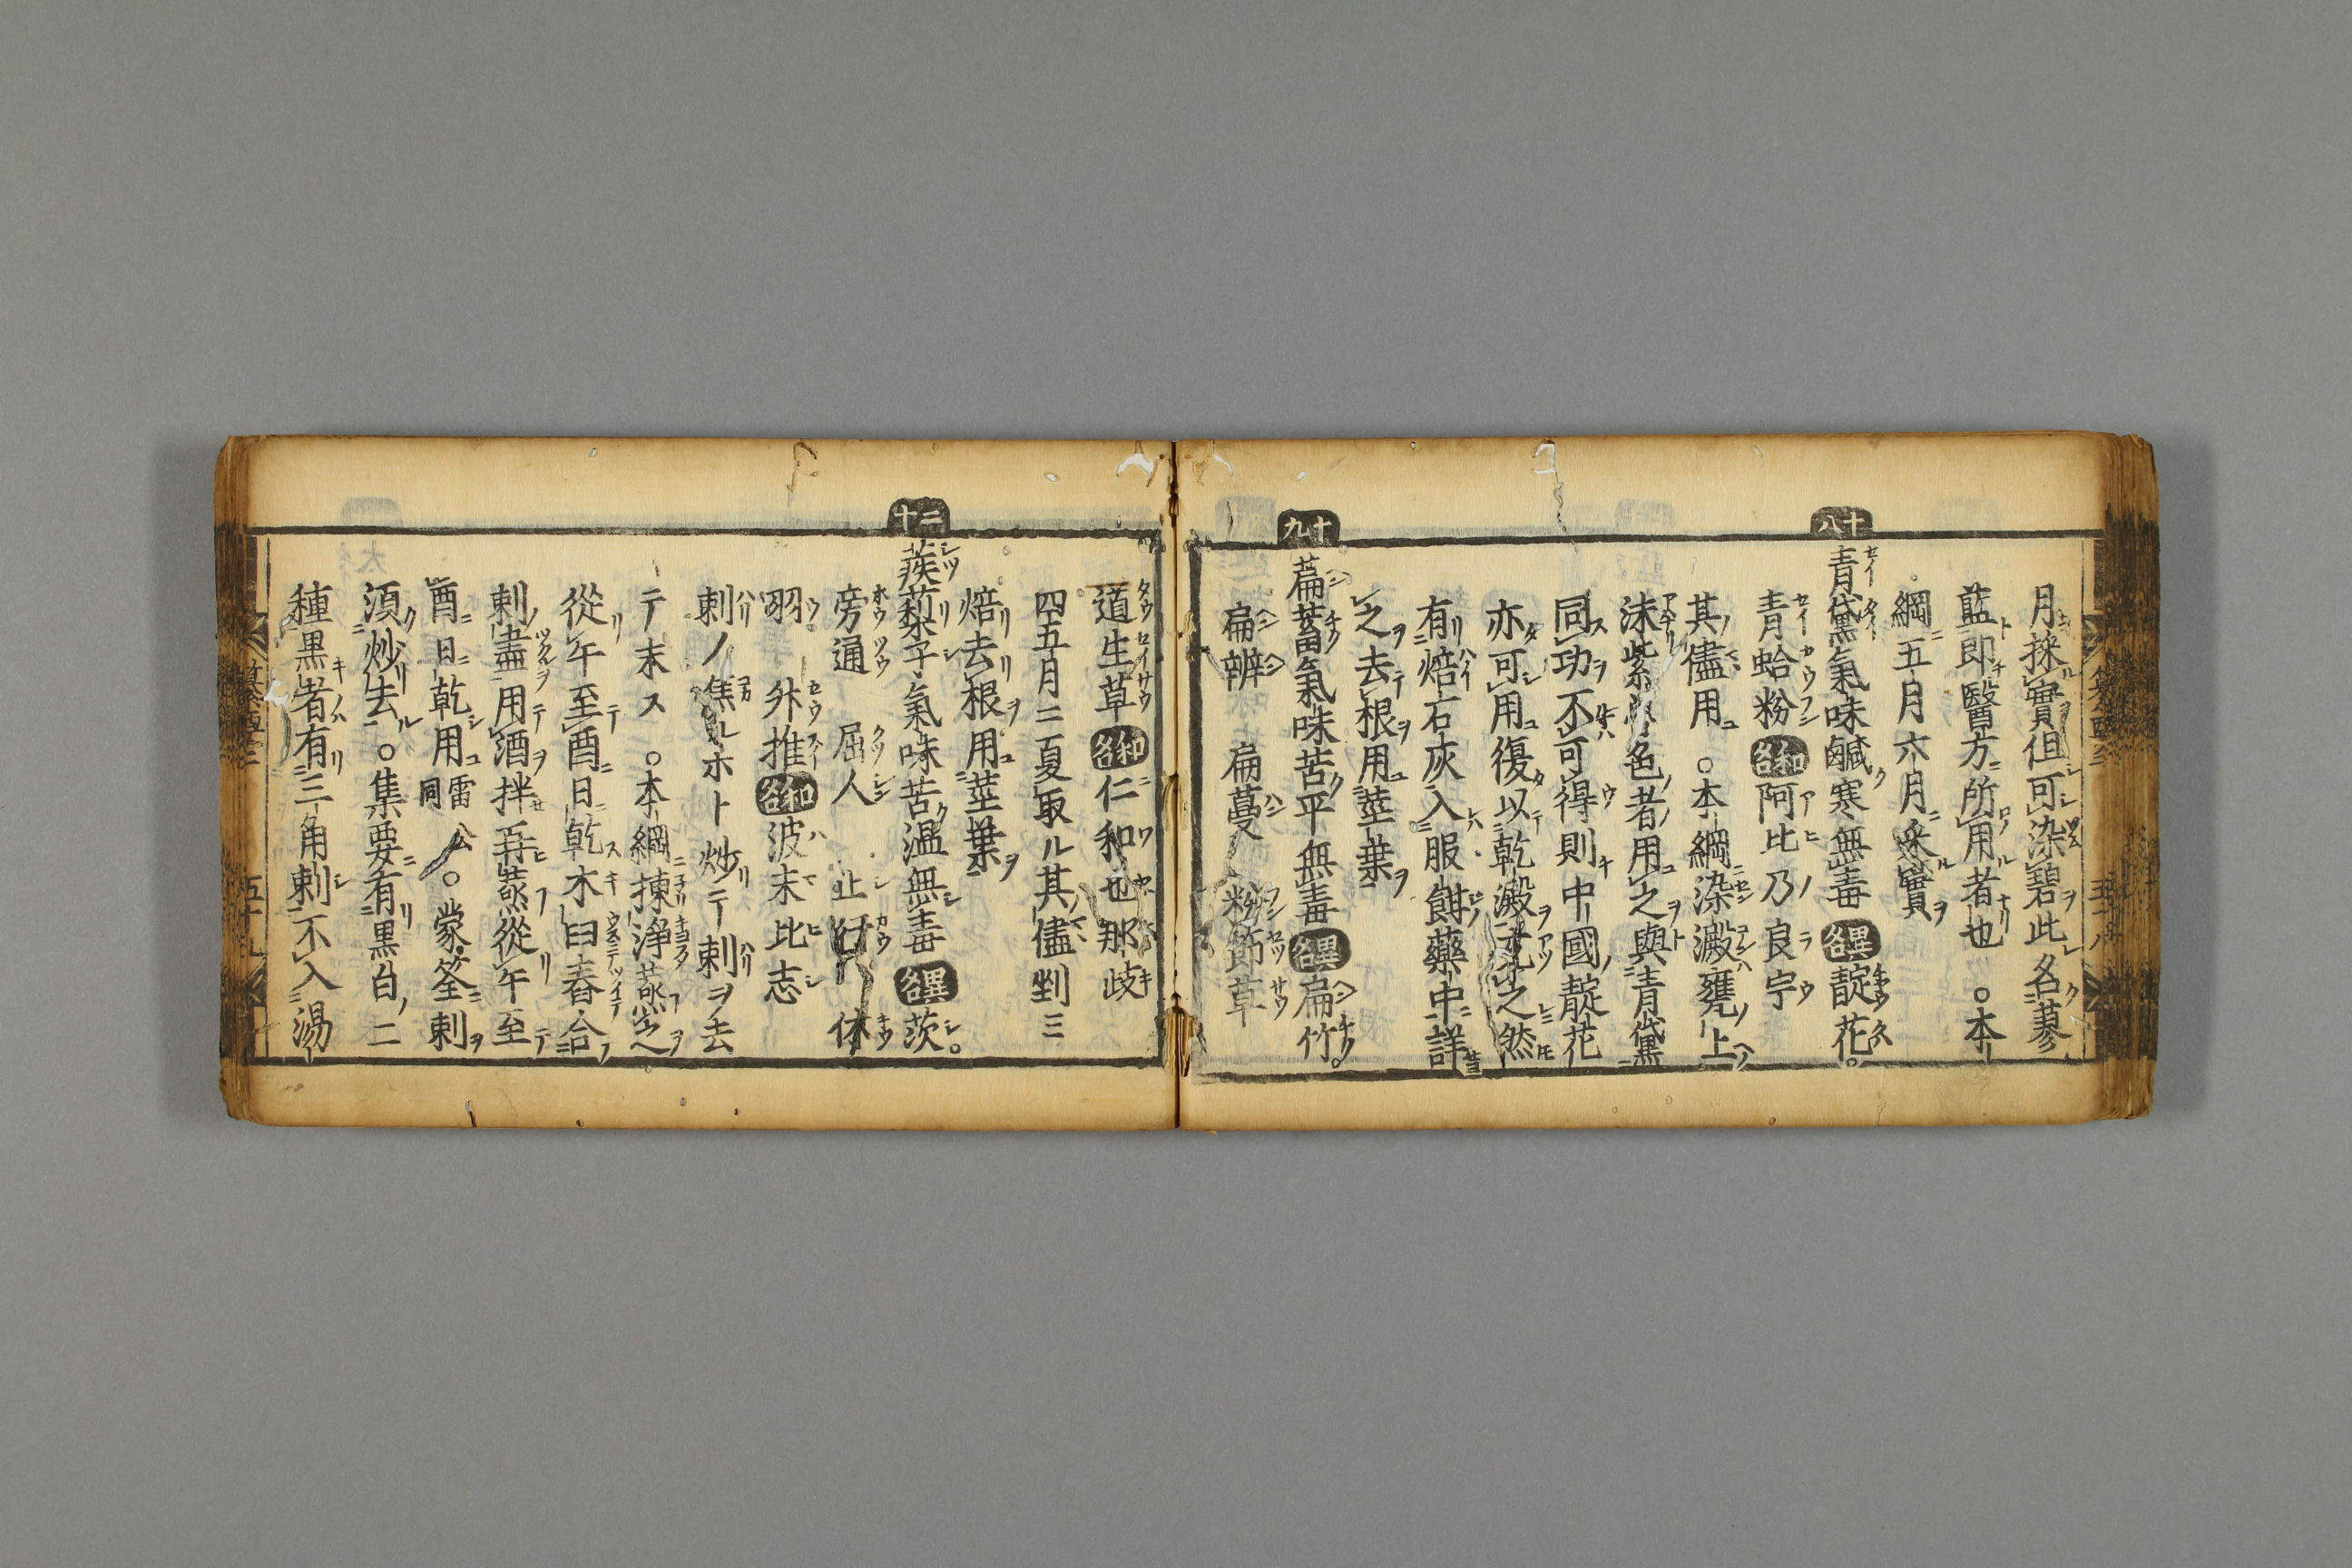 月採實但可染碧此名蓼
藍即醫方所用者也○本
綱五月六月采實
十八
青黛氣味鹹寒無毒異名靛花
青蛤粉和名阿比乃良宇
其儘用○本綱染澱甕上
沫紫色者用之與青黛
同功不可得則中國靛花
亦可用復以乾澱充之然
有焙石灰入服餌藥中詳
之去根用莖葉
十九
萹蓄氣味苦平無毒異名扁竹
扁辨 扁蔓 粉節草
道生草和名仁和也那岐
四五月ニ夏取ル其儘剉ミ
焙去根用莖葉
二十
蒺藜子氣味苦溫無毒異名茨
旁通 屈人 止行 休
羽 升推和名波末比志
刺ノ焦ルホト炒テ刺ヲ去
テ末ス○本綱揀淨蒸之
從午至酉日乾木臼舂合
刺盡用酒拌再蒸從午至
酉日乾用雷公同○蒙筌刺
須炒去○集要有黒白二
種黒者有三角刺不入湯